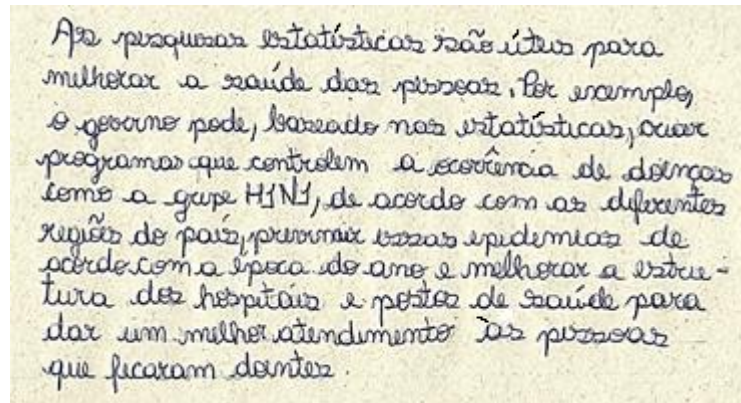 As pesquisas estatísticas são úteis para
melhorar a saúde das pessoas. Por exemplo,
o governo pode, baseado nas estatísticas, criar
programas que controlem a ocorrência de doenças
como a gripe H1N1, de acordo com as diferentes
regiões do país, prevenir essas epidemias de
acordo com a época do ano e melhorar a estru-
tura dos hospitais e postos de saúde para
dar um melhor atendimento às pessoas
que ficaram doentes.